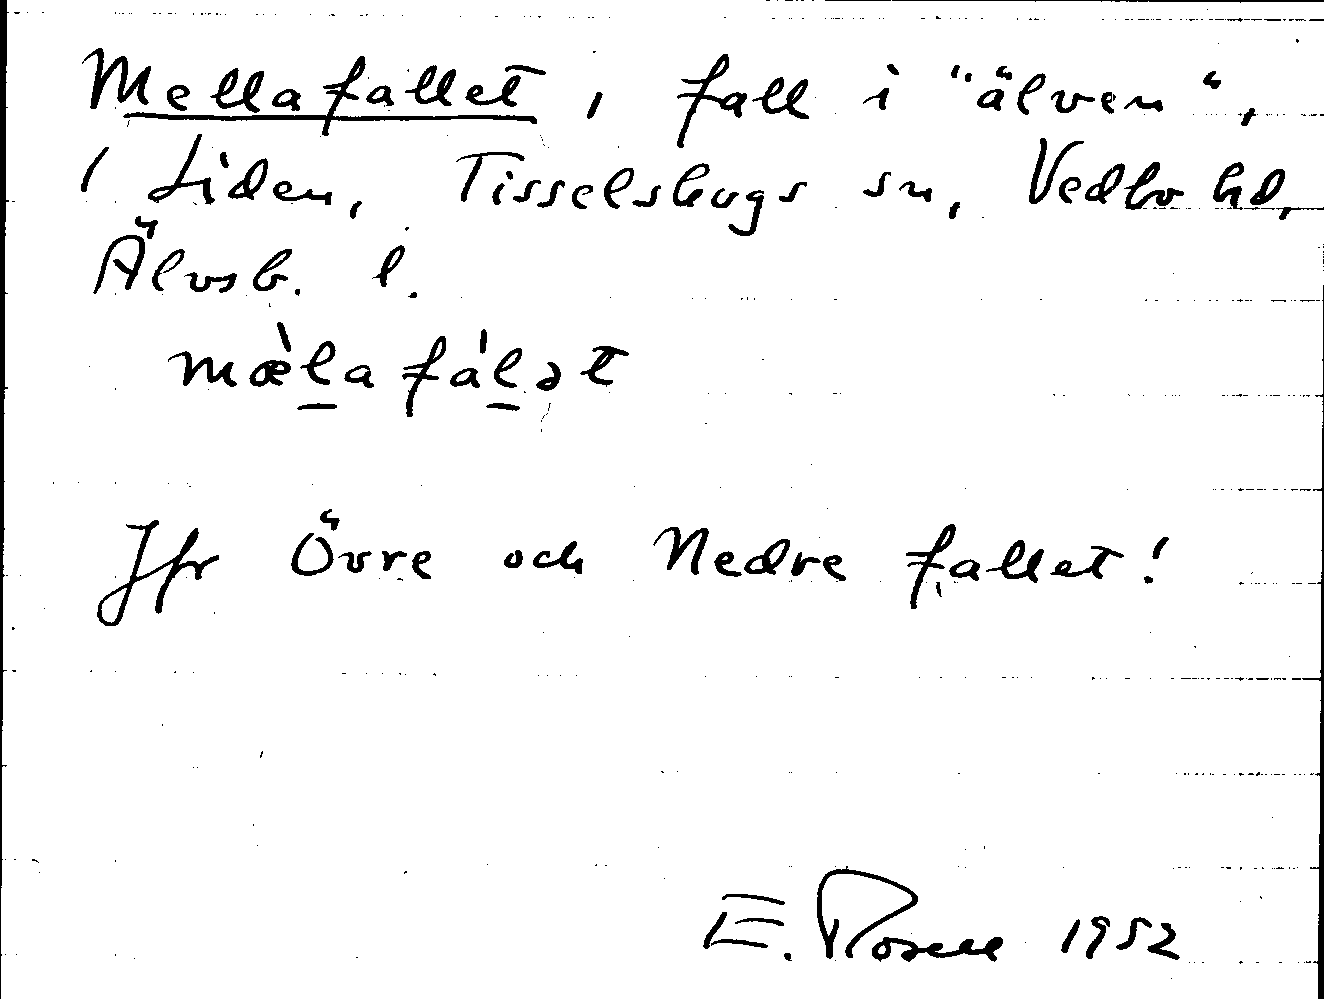 Mellafallet, fall i "älven",
1 Liden, Tisselskogs sn, Vedbo hd,
Älvsb. l.
mæ̀l̲afál̲ət
Jfr Övre och Nedre fallet!
E. Rosell 1952